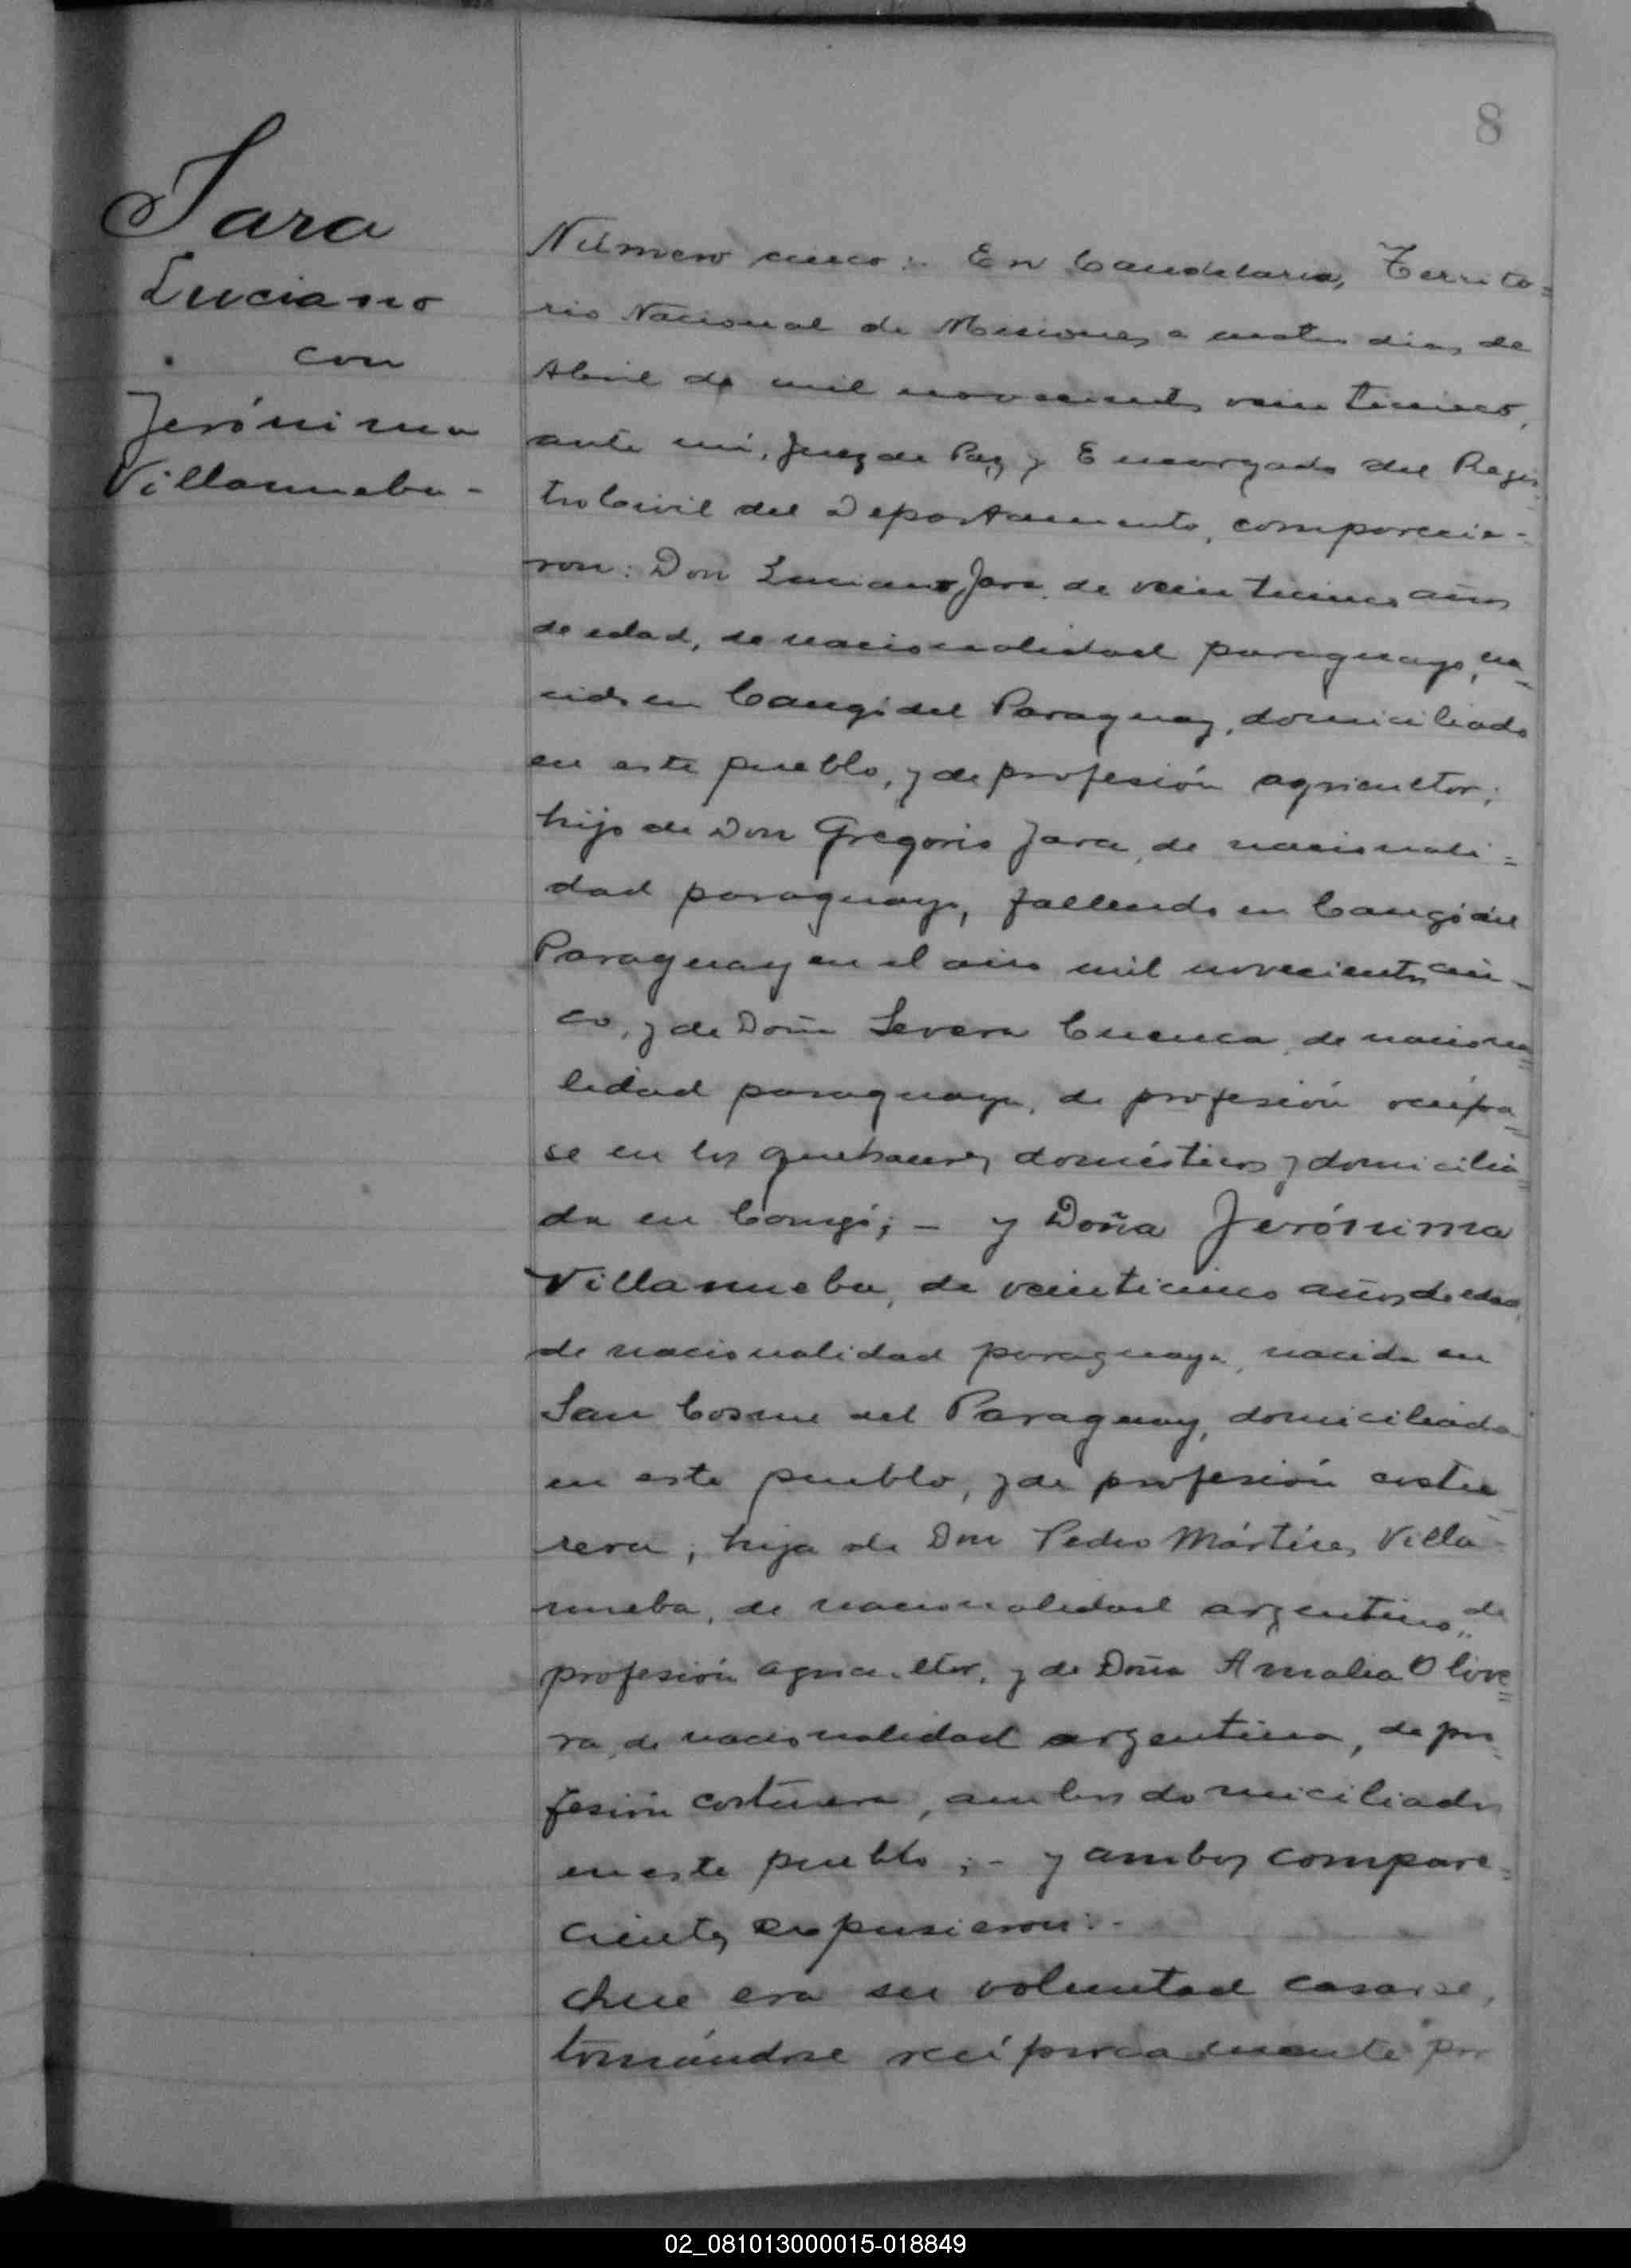 8
Jara
Luciano
con
Jerónima
Villanueba -
Número cinco:- En Candelaria, Territo=
rio Nacional de Misiones a cuatro dias de
Abril de mil novecientos veinticinco,
ante mi, Juez de Paz y Encargado del Regis-
tro Civil del Departamento, comparecie-
ron: Don Luciano Jara, de veinticinco años
de edad, de nacionalidad paraguayo, na-
cido en Cangó del Paraguay, domiciliado
en este pueblo, y de profesión agricultor;
hijo de Don Gregorio Jara, de nacionali=
dad paraguayo, fallecido en Cangó del
Paraguay en el año mil novecientos cin-
co, y de Doña Severa Cuenca, de naciona=
lidad paraguaya, de profesión ocúpa=
se en los quehaceres domésticos y domicilia=
da en Cangó; - y Doña Jerónima
Villanueba, de veinticinco años de edad,
de nacionalidad paraguaya, nacida en
San Cosme del Paraguay, domiciliada
en este pueblo, y de profesión costu=
rera; hija de Don Pedro Mártires Villa=
nueba, de nacionalidad argentino, de
profesión agricultor, y de Doña Amalia Olive=
ra, de nacionalidad argentina, de pro=
fesión costurera, ambos domiciliados
en este pueblo; - y ambos compare=
cientes expusieron:-
Que era su voluntad casarse,
tomándose recíprocamente por
02_081013000015-018849